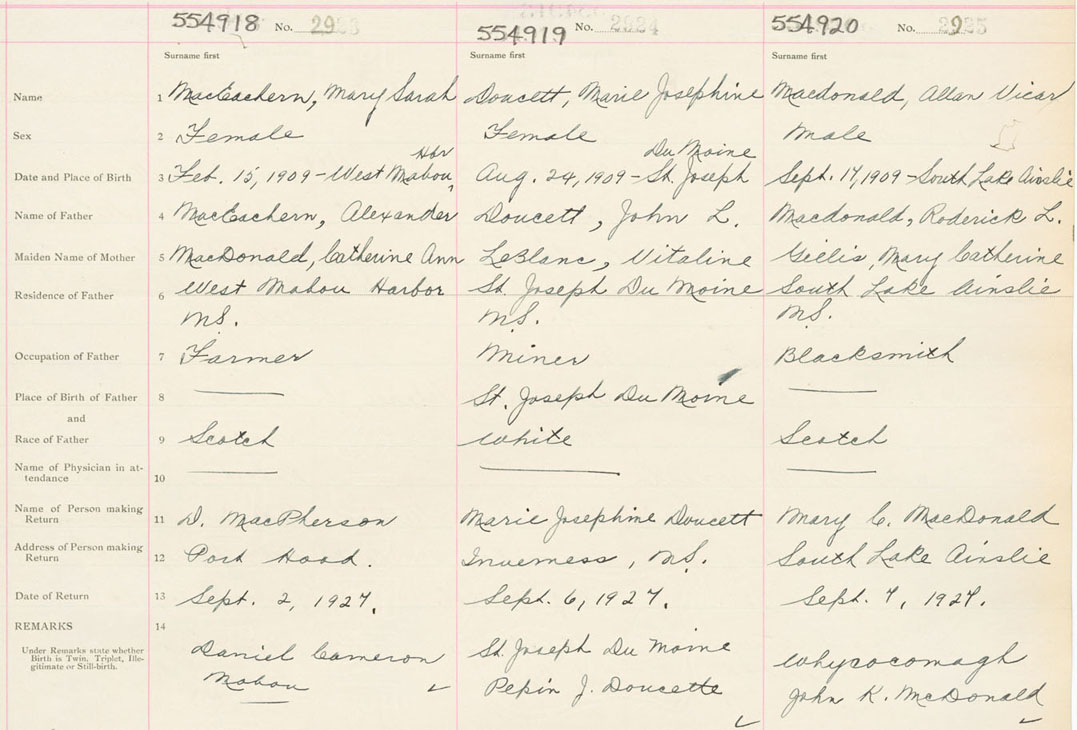 554918 No. 2983
554919 No. 2984
554920 No. 2985
Surname first
Surname first
Surname first
Name 1 MacEachern, Mary Sarah
Doucett, Marie Josephine
Macdonald, Allan Vicar
Sex 2 Female
Female
Male
Hbr
Du Moine
Date and Place of Birth 3 Feb. 15, 1909 - West Mabou
Aug. 24, 1909 - St. Joseph
Sept. 17, 1909 - South Lake Ainslie
Name of Father 4 MacEachern, Alexander
Doucett, John L.
Macdonald, Roderick L.
Maiden Name of Mother 5 MacDonald, Catherine Ann
LeBlanc, Vitaline
Gillis, Mary Catherine
Residence of Father 6 West Mabou Harbor
St Joseph Du Moine
South Lake Ainslie
N.S.
N.S.
N.S.
Occupation of Father 7 Farmer
Miner
Blacksmith
Place of Birth of Father 8
St. Joseph Du Moine
and
Race of Father 9 Scotch
White
Scotch
Name of Physician in at-
tendance 10
Name of Person making
Return 11 D. MacPherson
Marie Josephine Doucett
Mary C. MacDonald
Address of Person making
Return 12 Port Hood.
Inverness, N.S.
South Lake Ainslie
Date of Return 13 Sept. 2, 1927.
Sept. 6, 1927.
Sept. 7, 1927.
REMARKS 14
Under Remarks state whether
Birth is Twin, Triplet, Ille-
gitimate or Still-birth.
Daniel Cameron
Mabou
St. Joseph Du Moine
Pepin J. Doucette
Whycocomagh
John K. McDonald